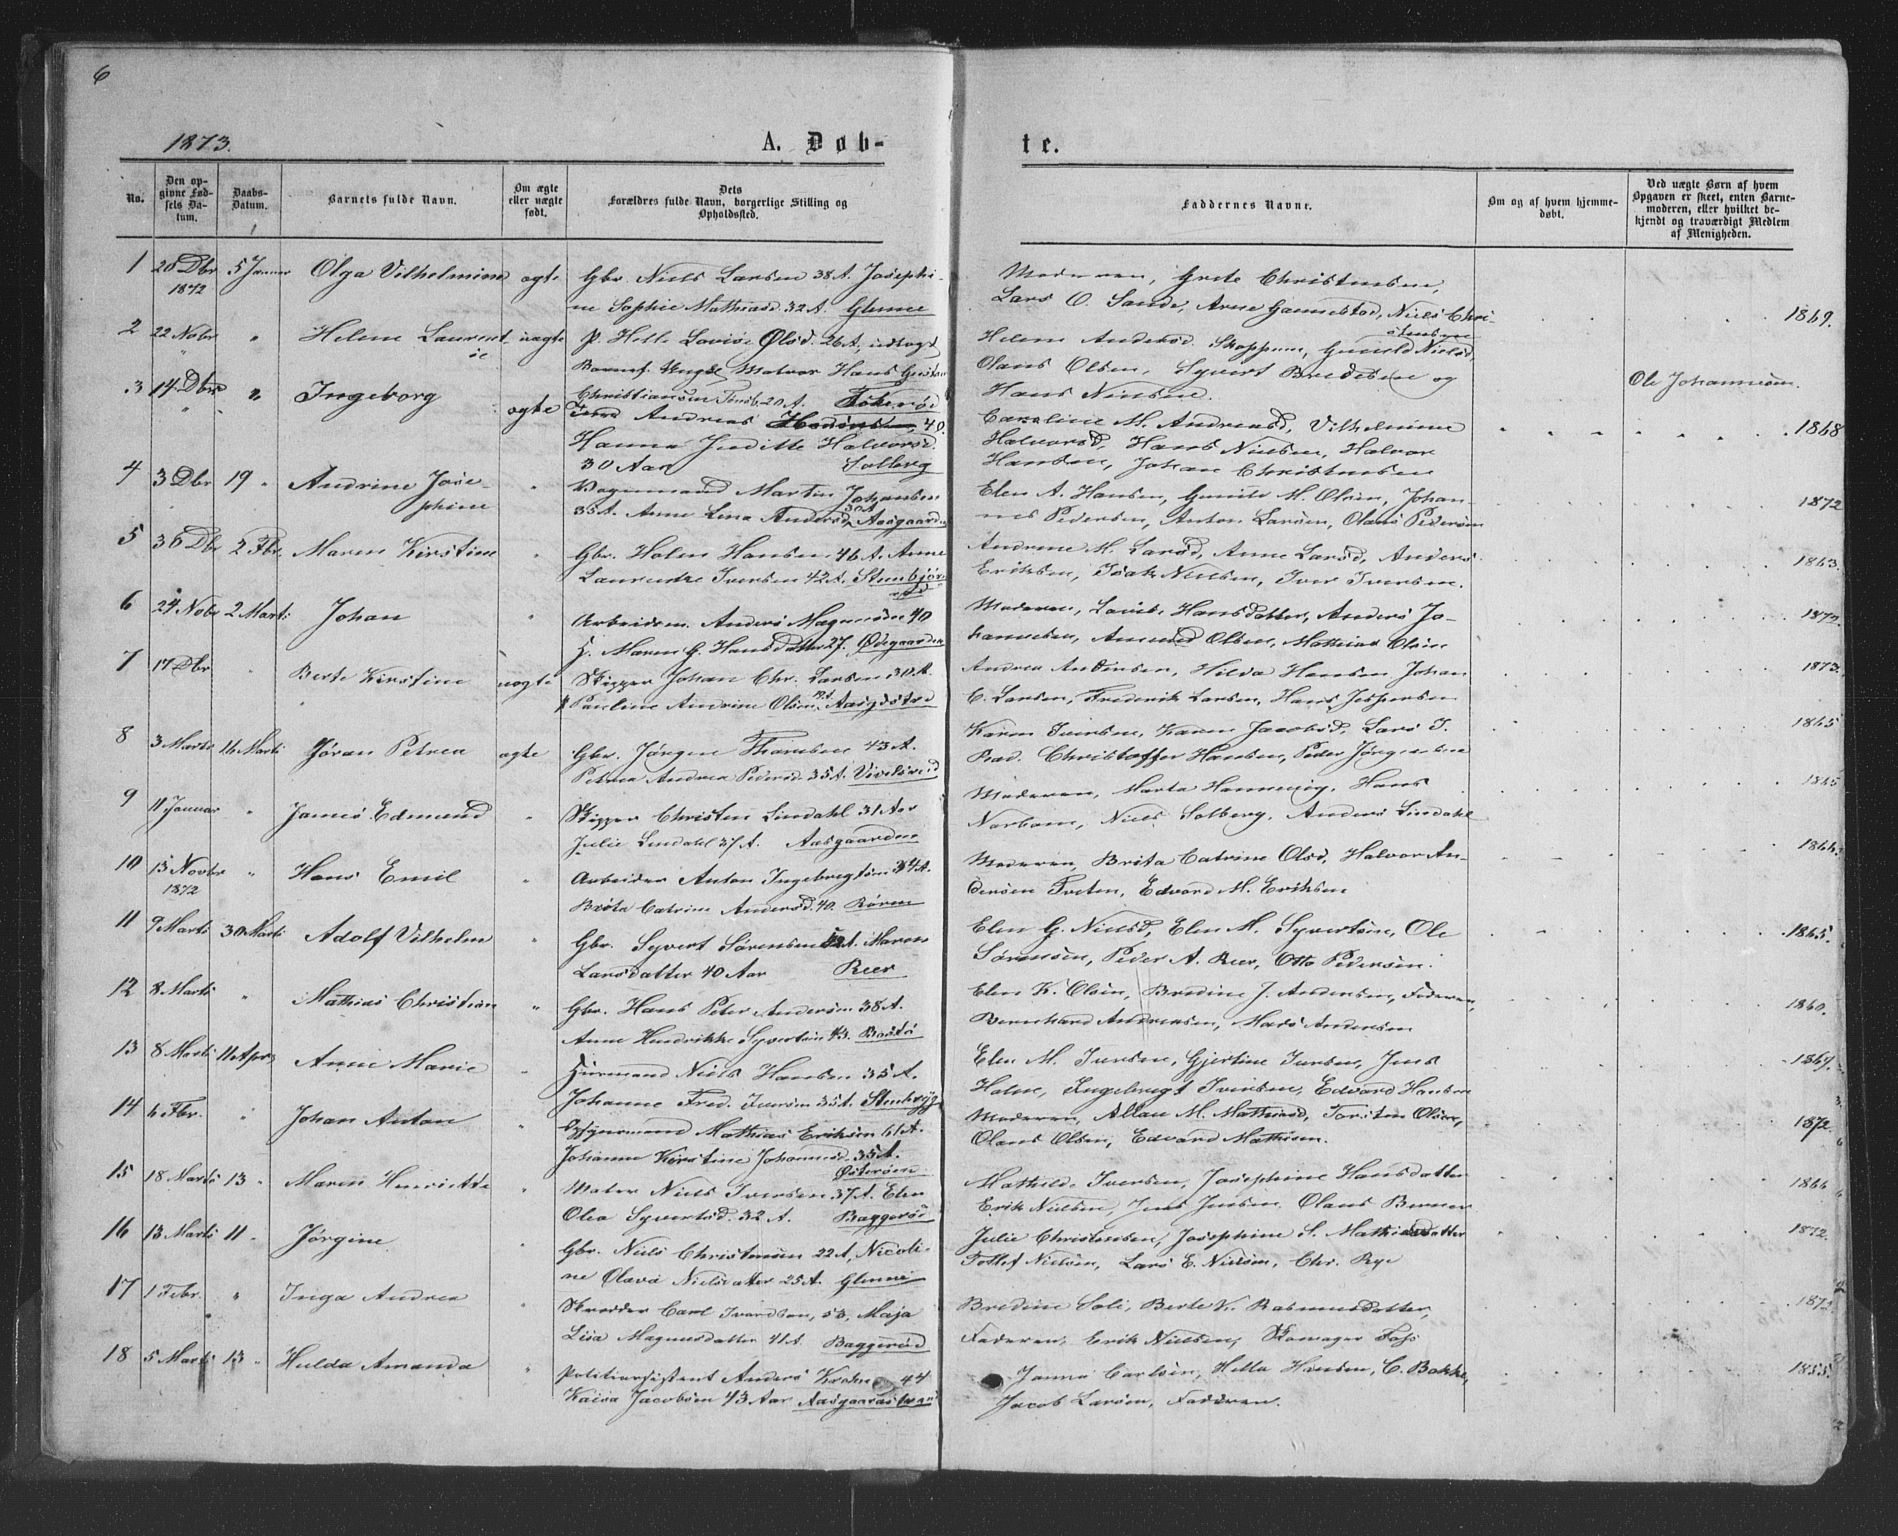 6
1873.
A. Døb-
te.
No.
Den op-
givne Fød-
sels Da-
tum.
Daabs-
Datum.
Barnets fulde Navn.
Om ægte
eller uægte
født.
Dets
Forældres fulde Navn, borgerlige Stilling og
Opholdssted.
Faddernes Navne.
Om og af hvem hjemme-
døbt.
Ved uægte Børn af hvem
Opgaven er skeet, enten Barne-
moderen, eller hvilket be-
kjendt og troværdigt Medlem
af Menigheden.
1 28 Dbr 5 Januar Olga Vilhelmine ægte Gbr. Niels Larsen 38 A. Josephi-
1872
ne Sophie Mathiasd 32 A. Glenne
Moderen, Grete Christensen,
Lars O. Sande, Arne Gannestad, Niels Chri-
stensen
1869.
2 22 Nobr " Helene Laurent- uægte P. Helle Lovise Olsd. 26 A.
se
Barnef. Halvor Hans
Christiansen 20 A.
Helene Andersd. Skoppum, Gunild Nielsd
Olaus Olsen, Syvert Bredesen og
Hans Nielsen.
Ole Johannesen.
3 14 Dbr " Ingeborg ægte Andreas 40.
Hanna Juditte Halvorsd.
30 Aar Solberg
Caroline M. Andreasd, Vilhelmine
Halvorsd, Hans Nielsen, Halvor
Hansen, Johan Christensen
1868
4 3 Dbr 19 " Andrine Jose- "
phine
Vognmand Martin Johansen
35 A. Anne Lina Andersd. 30 A Aasgaarden
Elen A. Hansen, Gunild M. Olsen, Johan-
nes Pedersen, Anton Larsen, Olaus Pedersen
1872
5 30 Dbr 2 Fbr. Maren Kirstine " Gbr. Halen Hansen 46 A. Anne
Laurentze Iversen 42 A. Stenbjør-
rød
Andrene M. Larsd, Anne Larsd, Anders
Eriksen, Isak Nielsen, Iver Iversen.
1863.
6 24 Nobr 2 Marts Johan " Arbeidsm. Anders Magnusen 40
H. Maren G. Hansdatter 27. Ødegaarden
Moderen, Lovise Hansdatter, Anders Jo-
hannesen, Amund Olsen, Mathias Olsen
1872.
7 17 Dbr " Berte Kirstine uægte Skipper Johan Chr. Larsen 30 A.
P. Pauline Andrine Olsen Aasgdstr.
Andrea Andersen, Hilda Hansen Johan
C. Larsen, Frederik Larsen, Hans Jespersen
1873.
8 3 Marts 16 Marts Jøran Petrea ægte Gbr. Jørgen Thorsen 43 A.
Petrea Andrea Pedersd. 35 A. Vivelsrød
Karen Iversen, Karen Jacobsd, Lars I.
Rød. Christoffer Hansen, Peder Jørgensen
1865
9 11 Januar " James Edmund " Skipper Christen Lindahl 31 Aar
Julie Lindahl 37 A. Aasgaarden
Moderen, Marta Hannevig, Hans
Narbom, Niels Solberg, Anders Lindahl
1865
10 15 Novbr " Hans Emil " Arbeider Anton Ingebregtsen 34 A.
1872
Brita Catrine Andersd. 40. Røren
Moderen, Brita Catrine Olsd, Halvor An-
dersen Treten, Edvard M. Eriksen
1866.
11 9 Marts 30 Marts Adolf Vilhelm " Gbr. Syvert Sørensen 42 A. Maren
Larsdatter 40 Aar Reer
Elen G. Nielsd, Elen M. Syvertsen, Ole
Sørensen, Peder A. Reer, Otto Pedersen.
1865.
12 8 Marts " Mathias Christian " Gbr. Hans Peter Andersen 38 A.
Anne Hendrikke Syvertsen 43. Bastø
Elen K. Olsen, Bredine J. Andersen, Faderen,
Bernhard Andreasen, Mads Andersen
1860.
13 8 Marts 11 Apr. Anne Marie " Huusmand Niels Hansen 35 A.
Johanne Fred. Iversen 35 A.
Elen M. Iversen, Gjertine Iversen, Jens
Holm, Ingebregt Iversen, Edvard Hansen
1869.
14 6 Fbr. " Johan Anton " Opsynsmand Mathias Eriksen 61 A.
Johanne Kirstine Johannesd. 35 A.
Østerøen
Moderen, Allau M. Mathiasd, Torsten Olsen,
Olaus Olsen, Edvard Mathisen.
1872.
15 18 Marts 13 " Maren Henriette " Maler Niels Iversen 37 A. Elen
Olea Syvertsd. 32 A. Baggerød
Mathilde Iversen, Josephine Hansdatter
Erik Nielsen, Jens Jensen, Olaus Berner
1866
16 13 Marts 11 " Jørgine " Gbr. Niels Christensen 22 A, Nicoli-
ne Olava Nielsdatter 25 A. Glenne
Julie Christensen, Josephine S. Mathiasdatter
Tollef Nielsen, Lars E. Nielsen, Chr. Rye
1872.
17 1 Febr. " Inga Andrea " Skrædder Carl Ivardsen, 53, Maja
Lisa Magnusdatter 41 A. Baggerød
Bredine Soli, Berte K. Rasmusdatter,
Faderen, Erik Nielsen, Skomager Foss
187
18 5 Marts 13 " Hulda Amanda " Politiassistent Anders Krohn 44
Kaisa Jacobsen 43 Aar Aasgaardstrand
Janna Carlsen, Hella Hansen, C. Bakke,
Jacob Larsen, Faderen.
1855.